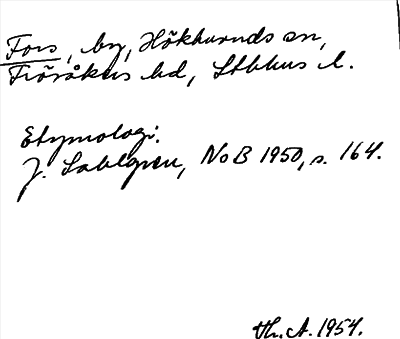 Fors, by, Hökhuvuds sn,
Frösåkers hd, Stbhus l.
Etymologi.
J. Sahlgren, NoB 1950, s. 164.
Th. A. 1954.